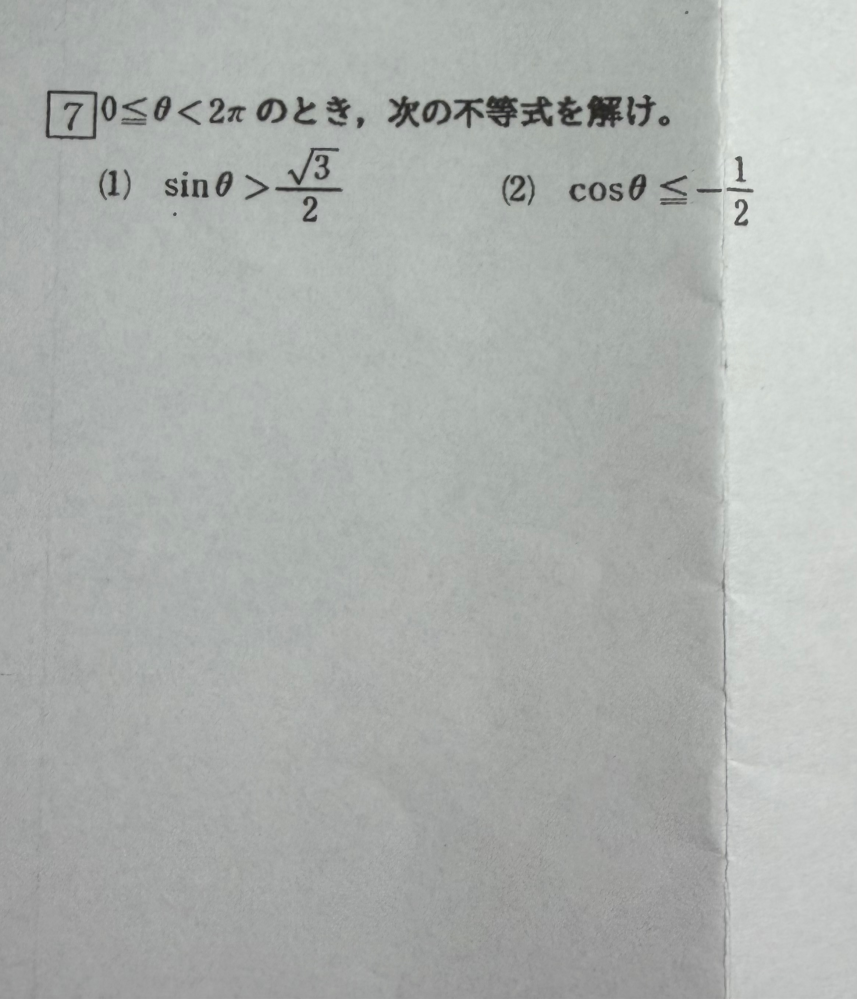 7 0≦θ<2π のとき，次の不等式を解け。
(1) sinθ > √3/2 (2) cosθ ≦ -1/2